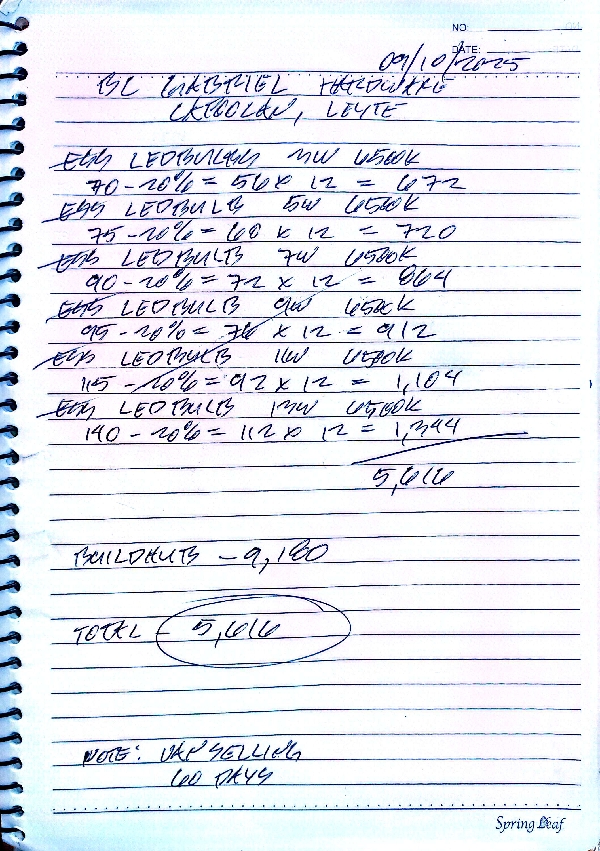 NO.
DATE: 09/10/2025
BC GABRIEL HARDWARE
, LEYTE
LEDBULBS 3W 6500K
70 - 20% = 56 x 12 = 672
LEDBULB 5W 6500K
75 - 20% = 60 x 12 = 720
LEDBULB 7W 6500K
90 - 20% = 72 x 12 = 864
LEDBULB 9W 6500K
95 - 20% = 76 x 12 = 912
LEDBULB 11W 6500K
115 - 20% = 92 x 12 = 1,104
LEDBULB 13W 6500K
140 - 20% = 112 x 12 = 1,344
5,616
BUILDHUB - 9,180
TOTAL - 5,616
NOTE: VAN SELLING
60 DAYS
Spring Leaf